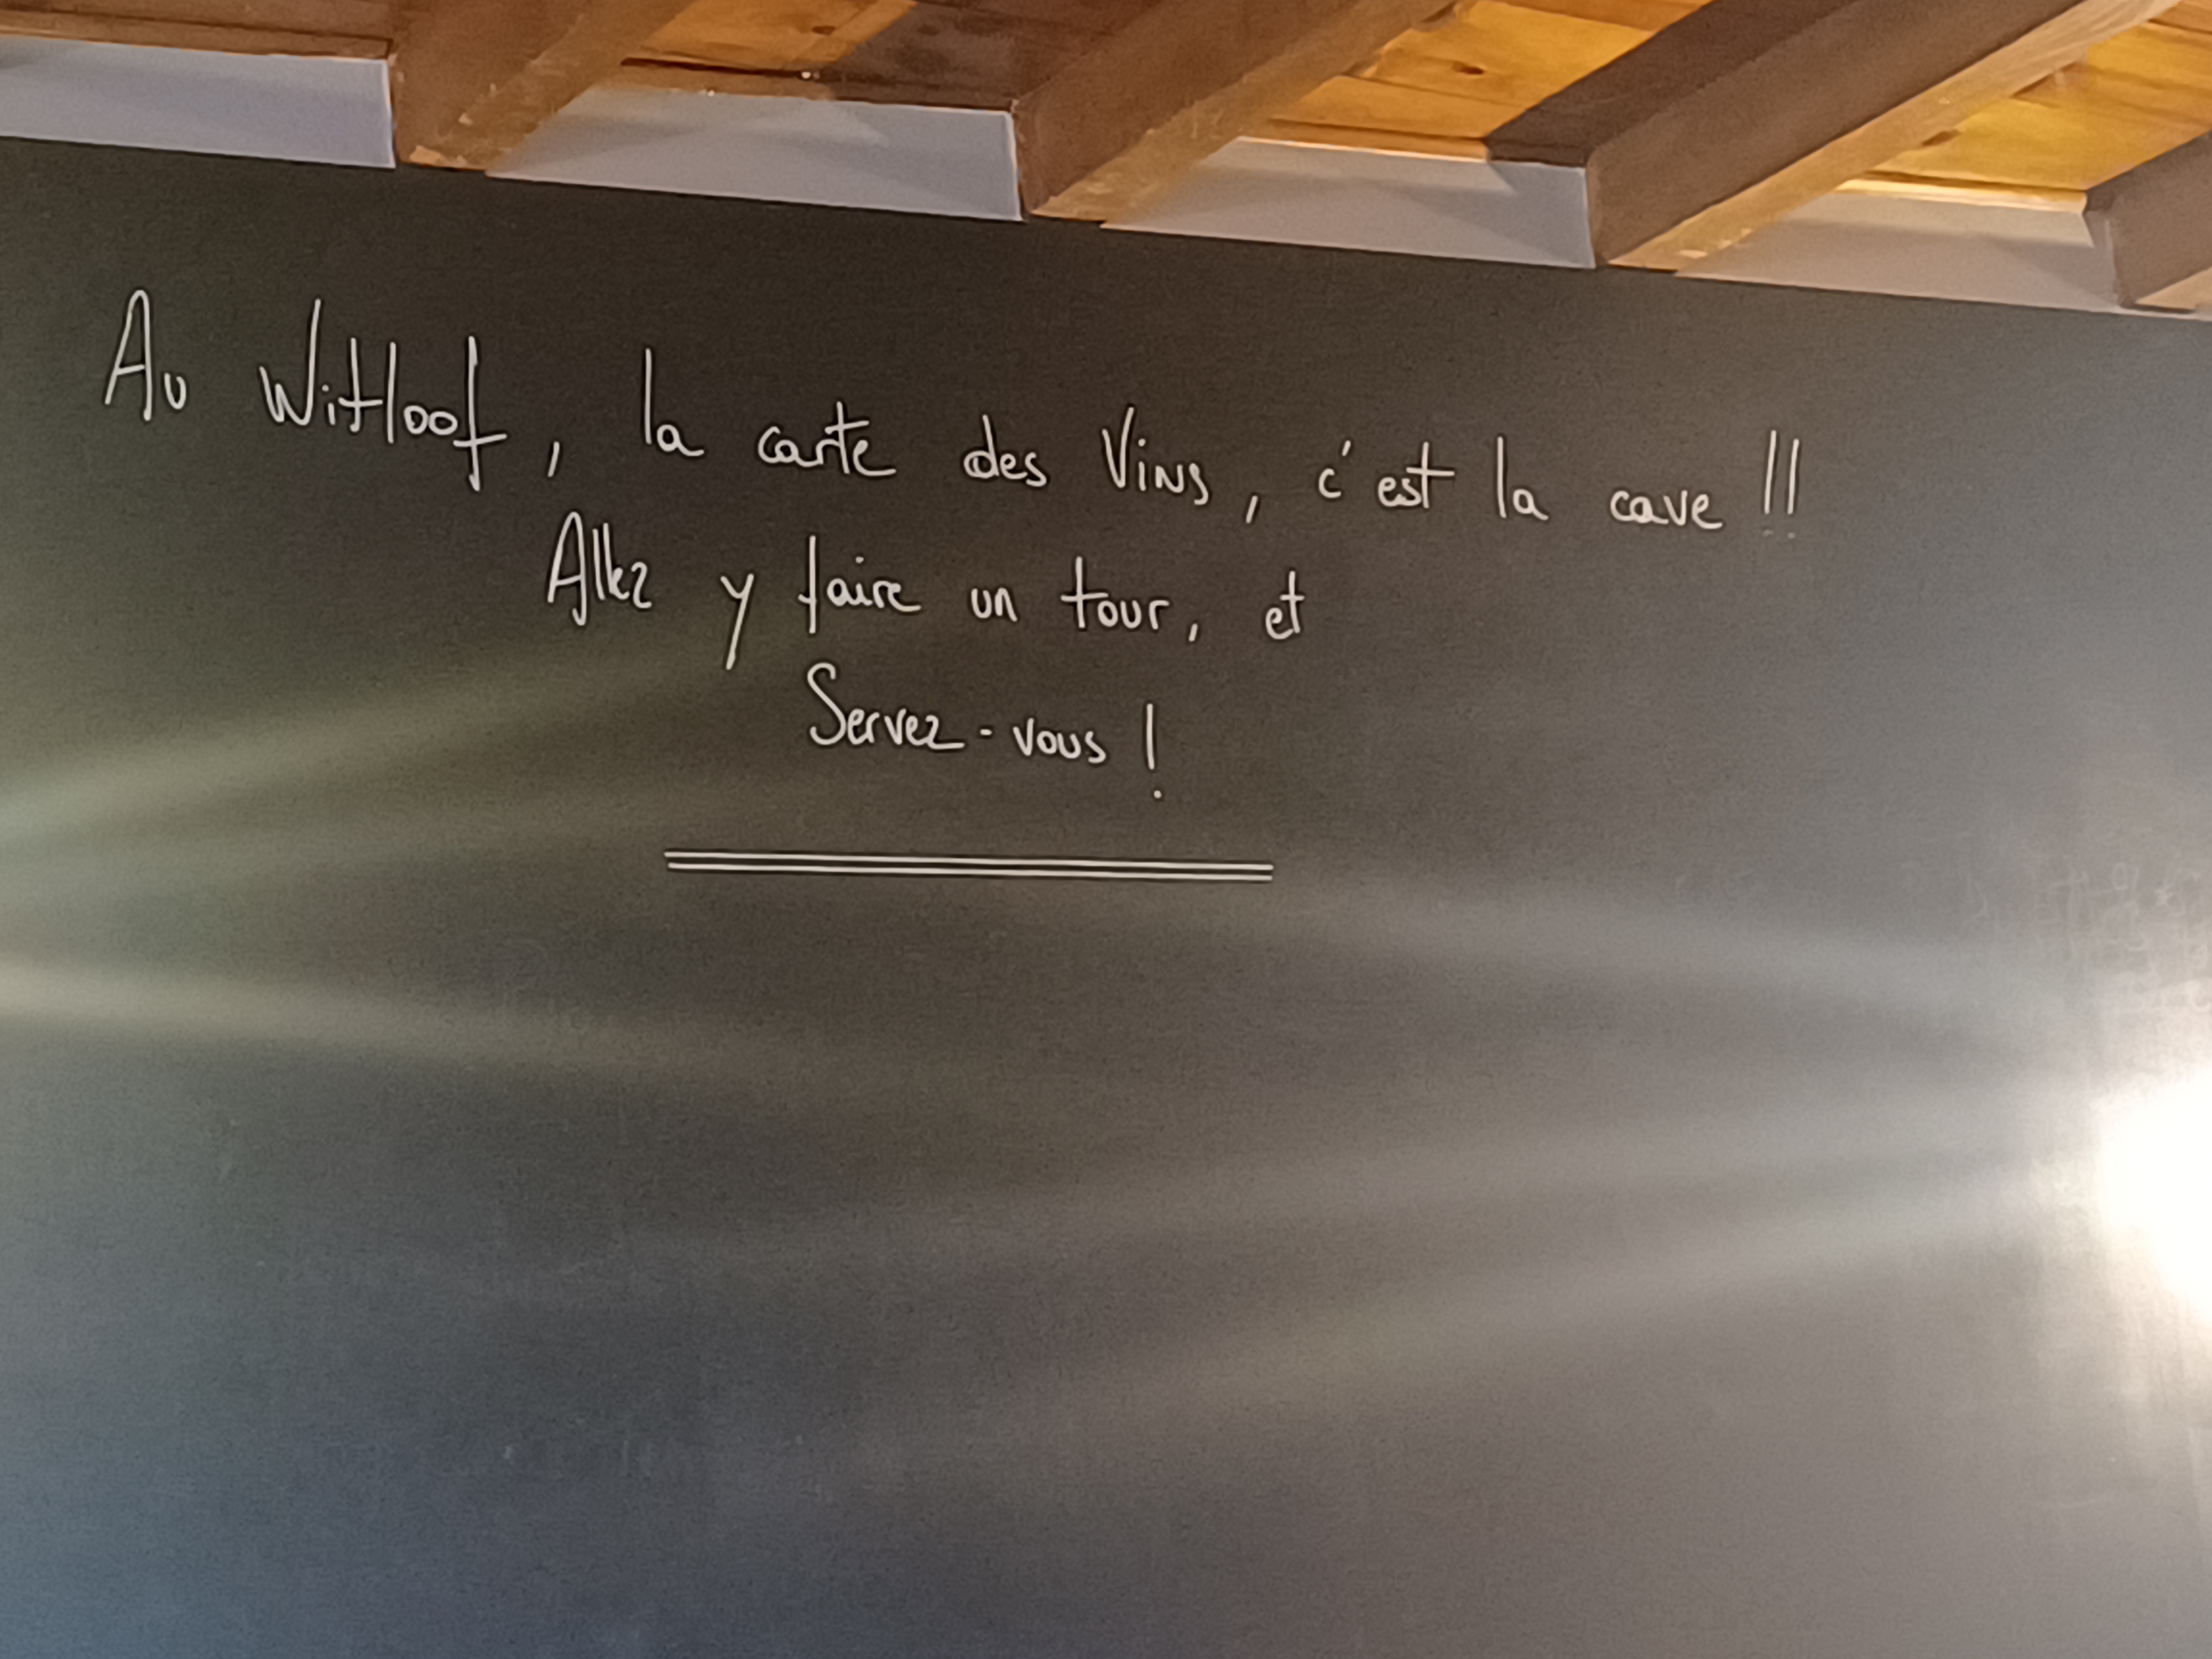 Au Witloof, la carte des Vins, c'est la cave !!
Allez y faire un tour, et
Servez-vous !